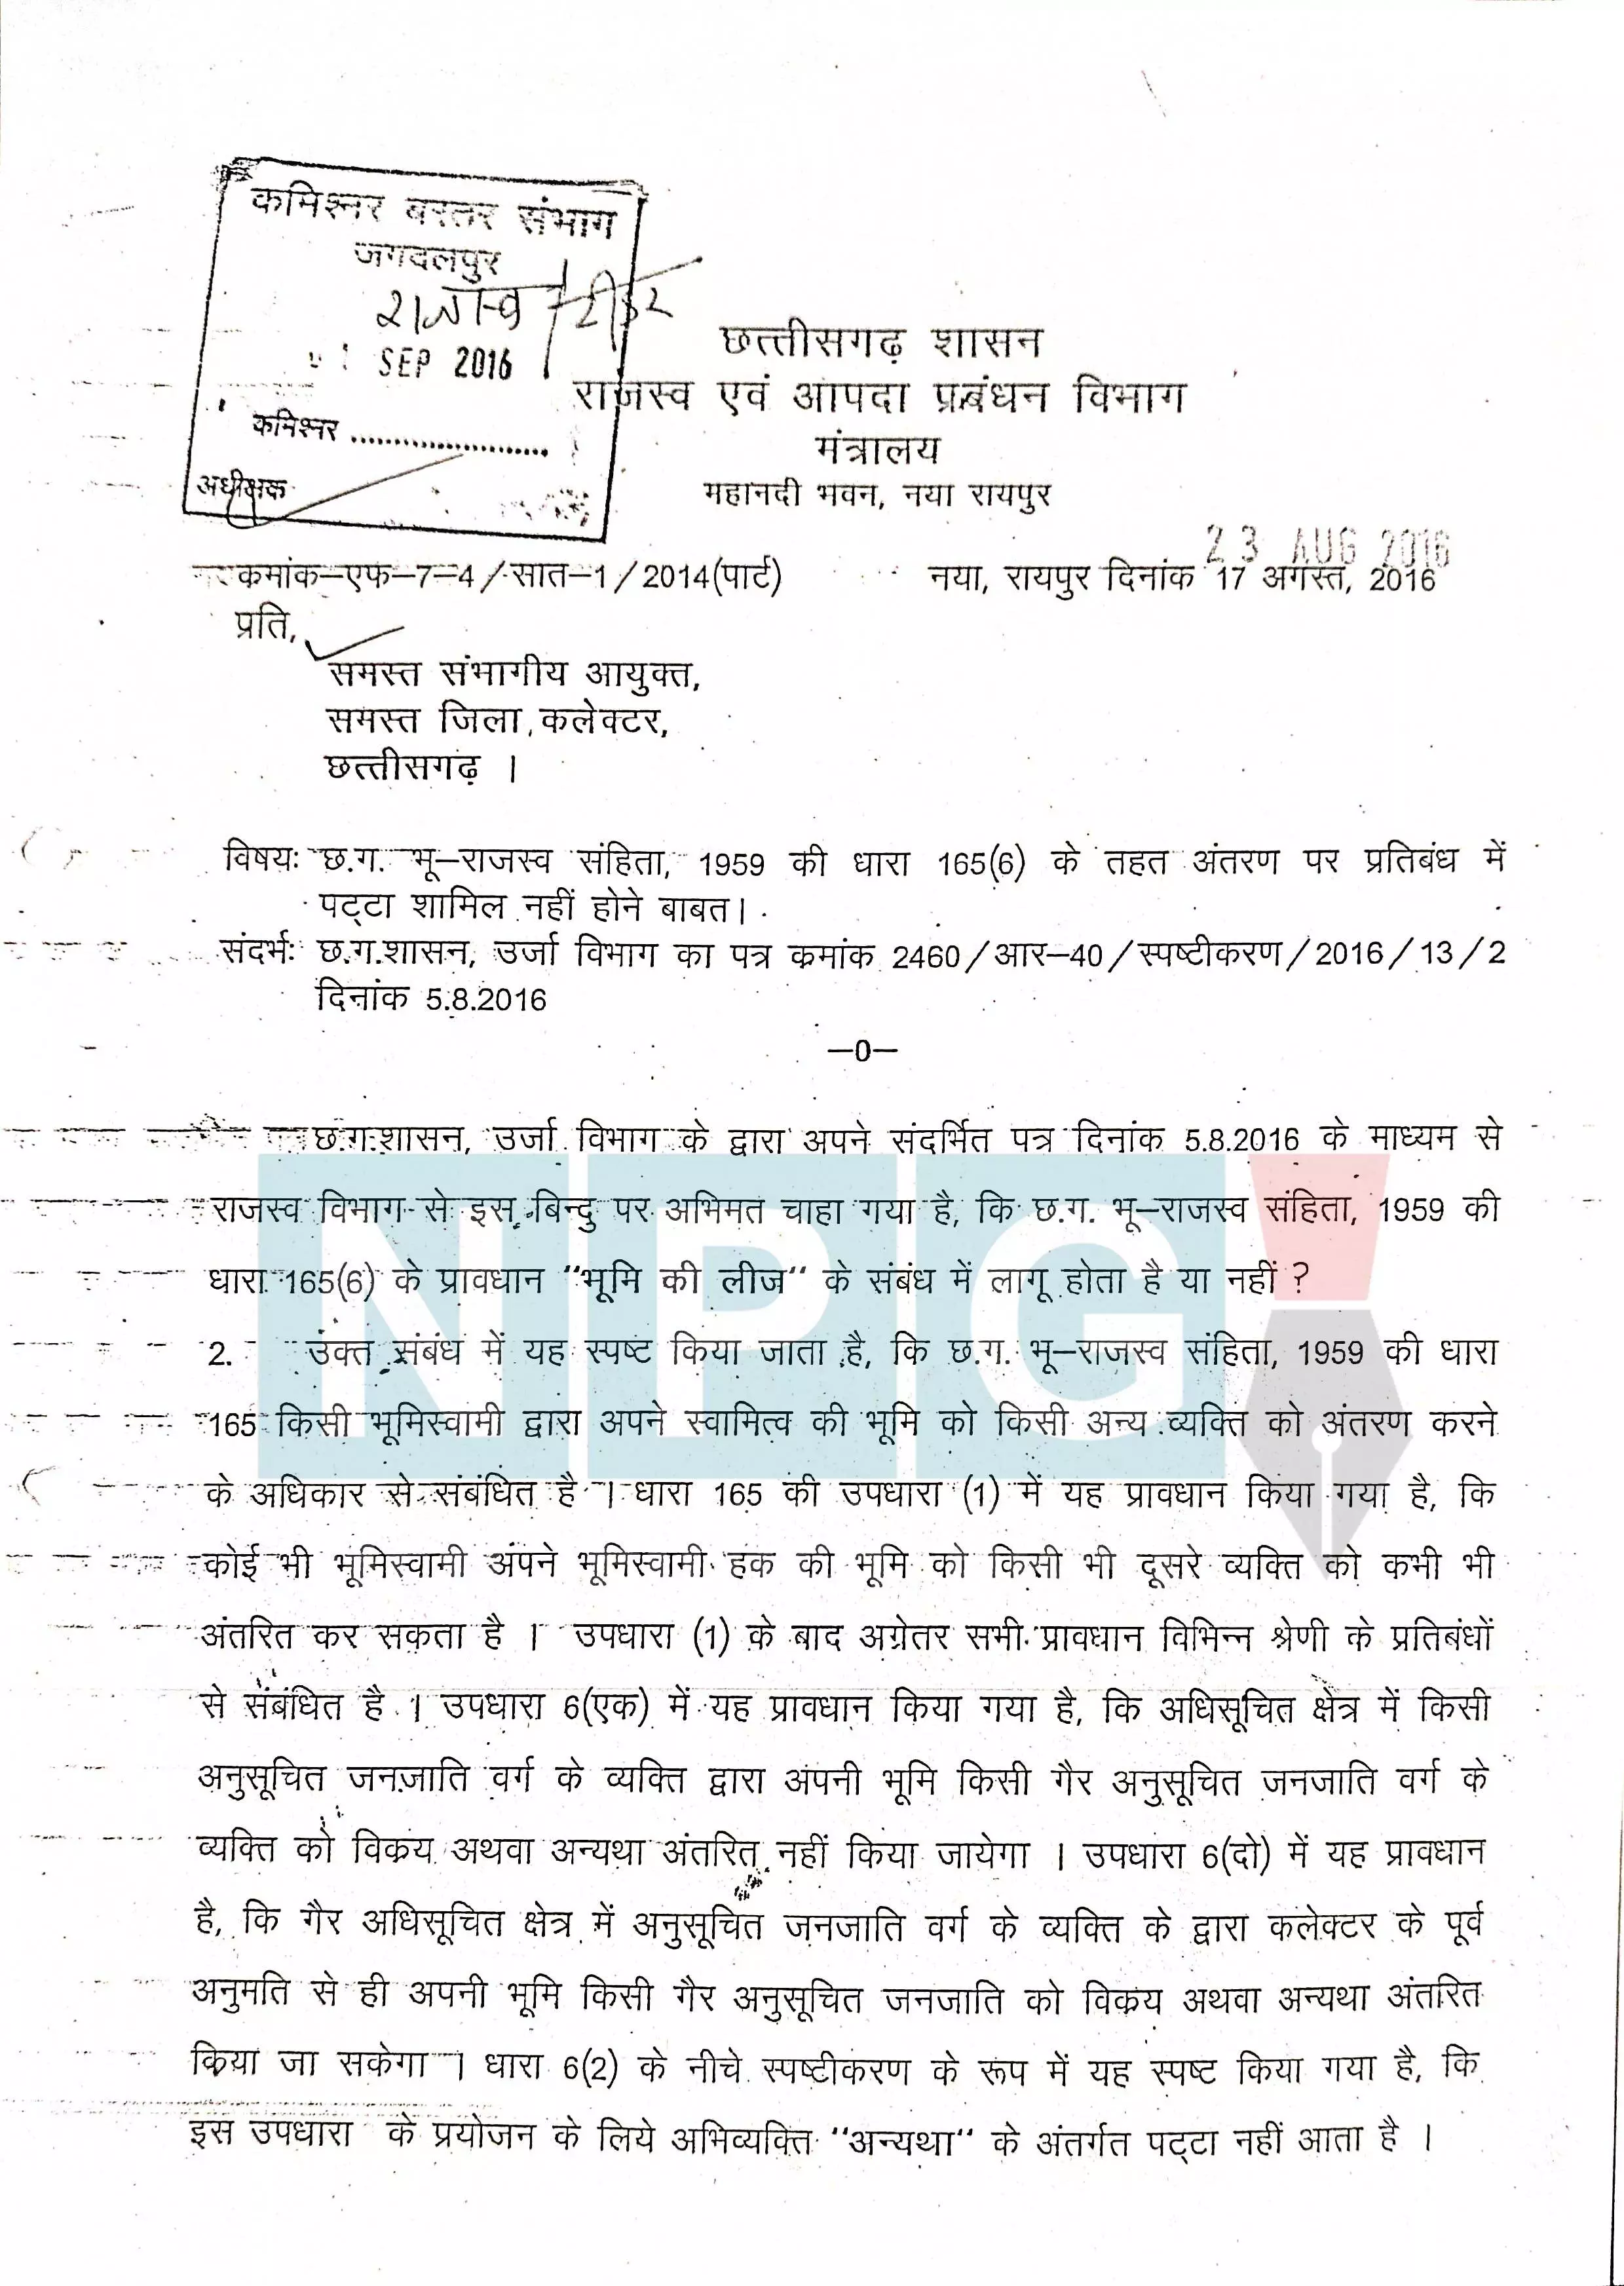 कमिश्नर बस्तर संभाग
जगदलपुर
राजस्व
SEP 2016
कमिश्नर ........................
अधीक्षक
छत्तीसगढ़ शासन
राजस्व एवं आपदा प्रबंधन विभाग
मंत्रालय
महानदी भवन, नया रायपुर
23 AUG 2016
कमांक–एफ–7–4/सात–1/2014(पार्ट) नया, रायपुर दिनांक 17 अगस्त, 2016
प्रति,
समस्त संभागीय आयुक्त,
समस्त जिला कलेक्टर,
छत्तीसगढ़ ।
विषयः छ.ग. भू–राजस्व संहिता, 1959 की धारा 165(6) के तहत अंतरण पर प्रतिबंध में
पट्टा शामिल नहीं होने बाबत।
संदर्भः छ.ग.शासन, उर्जा विभाग का पत्र कमांक 2460/आर–40/स्पष्टीकरण/2016/13/2
दिनांक 5.8.2016
–0–
छ.ग.शासन, उर्जा विभाग के द्वारा अपने संदर्भित पत्र दिनांक 5.8.2016 के माध्यम से
राजस्व विभाग से इस बिन्दु पर अभिमत चाहा गया है, कि छ.ग. भू–राजस्व संहिता, 1959 की
धारा 165(6) के प्रावधान "भूमि की लीज" के संबंध में लागू होता है या नहीं ?
2. उक्त संबंध में यह स्पष्ट किया जाता है, कि छ.ग. भू–राजस्व संहिता, 1959 की धारा
165 किसी भूमिस्वामी द्वारा अपने स्वामित्व की भूमि को किसी अन्य व्यक्ति को अंतरण करने
के अधिकार से संबंधित है । धारा 165 की उपधारा (1) में यह प्रावधान किया गया है, कि
कोई भी भूमिस्वामी अपने भूमिस्वामी हक की भूमि को किसी भी दूसरे व्यक्ति को कभी भी
अंतरित कर सकता है । उपधारा (1) के बाद अग्रेतर सभी प्रावधान विभिन्न श्रेणी के प्रतिबंधों
से संबंधित है । उपधारा 6(एक) में यह प्रावधान किया गया है, कि अधिसूचित क्षेत्र में किसी
अनुसूचित जनजाति वर्ग के व्यक्ति द्वारा अपनी भूमि किसी गैर अनुसूचित जनजाति वर्ग के
व्यक्ति को विकय अथवा अन्यथा अंतरित नहीं किया जायेगा । उपधारा 6(दो) में यह प्रावधान
है, कि गैर अधिसूचित क्षेत्र में अनुसूचित जनजाति वर्ग के व्यक्ति के द्वारा कलेक्टर के पूर्व
अनुमति से ही अपनी भूमि किसी गैर अनुसूचित जनजाति को विकय अथवा अन्यथा अंतरित
किया जा सकेगा । धारा 6(2) के नीचे स्पष्टीकरण के रूप में यह स्पष्ट किया गया है, कि
इस उपधारा के प्रयोजन के लिये अभिव्यक्ति "अन्यथा" के अंतर्गत पट्टा नहीं आता है ।
NPG